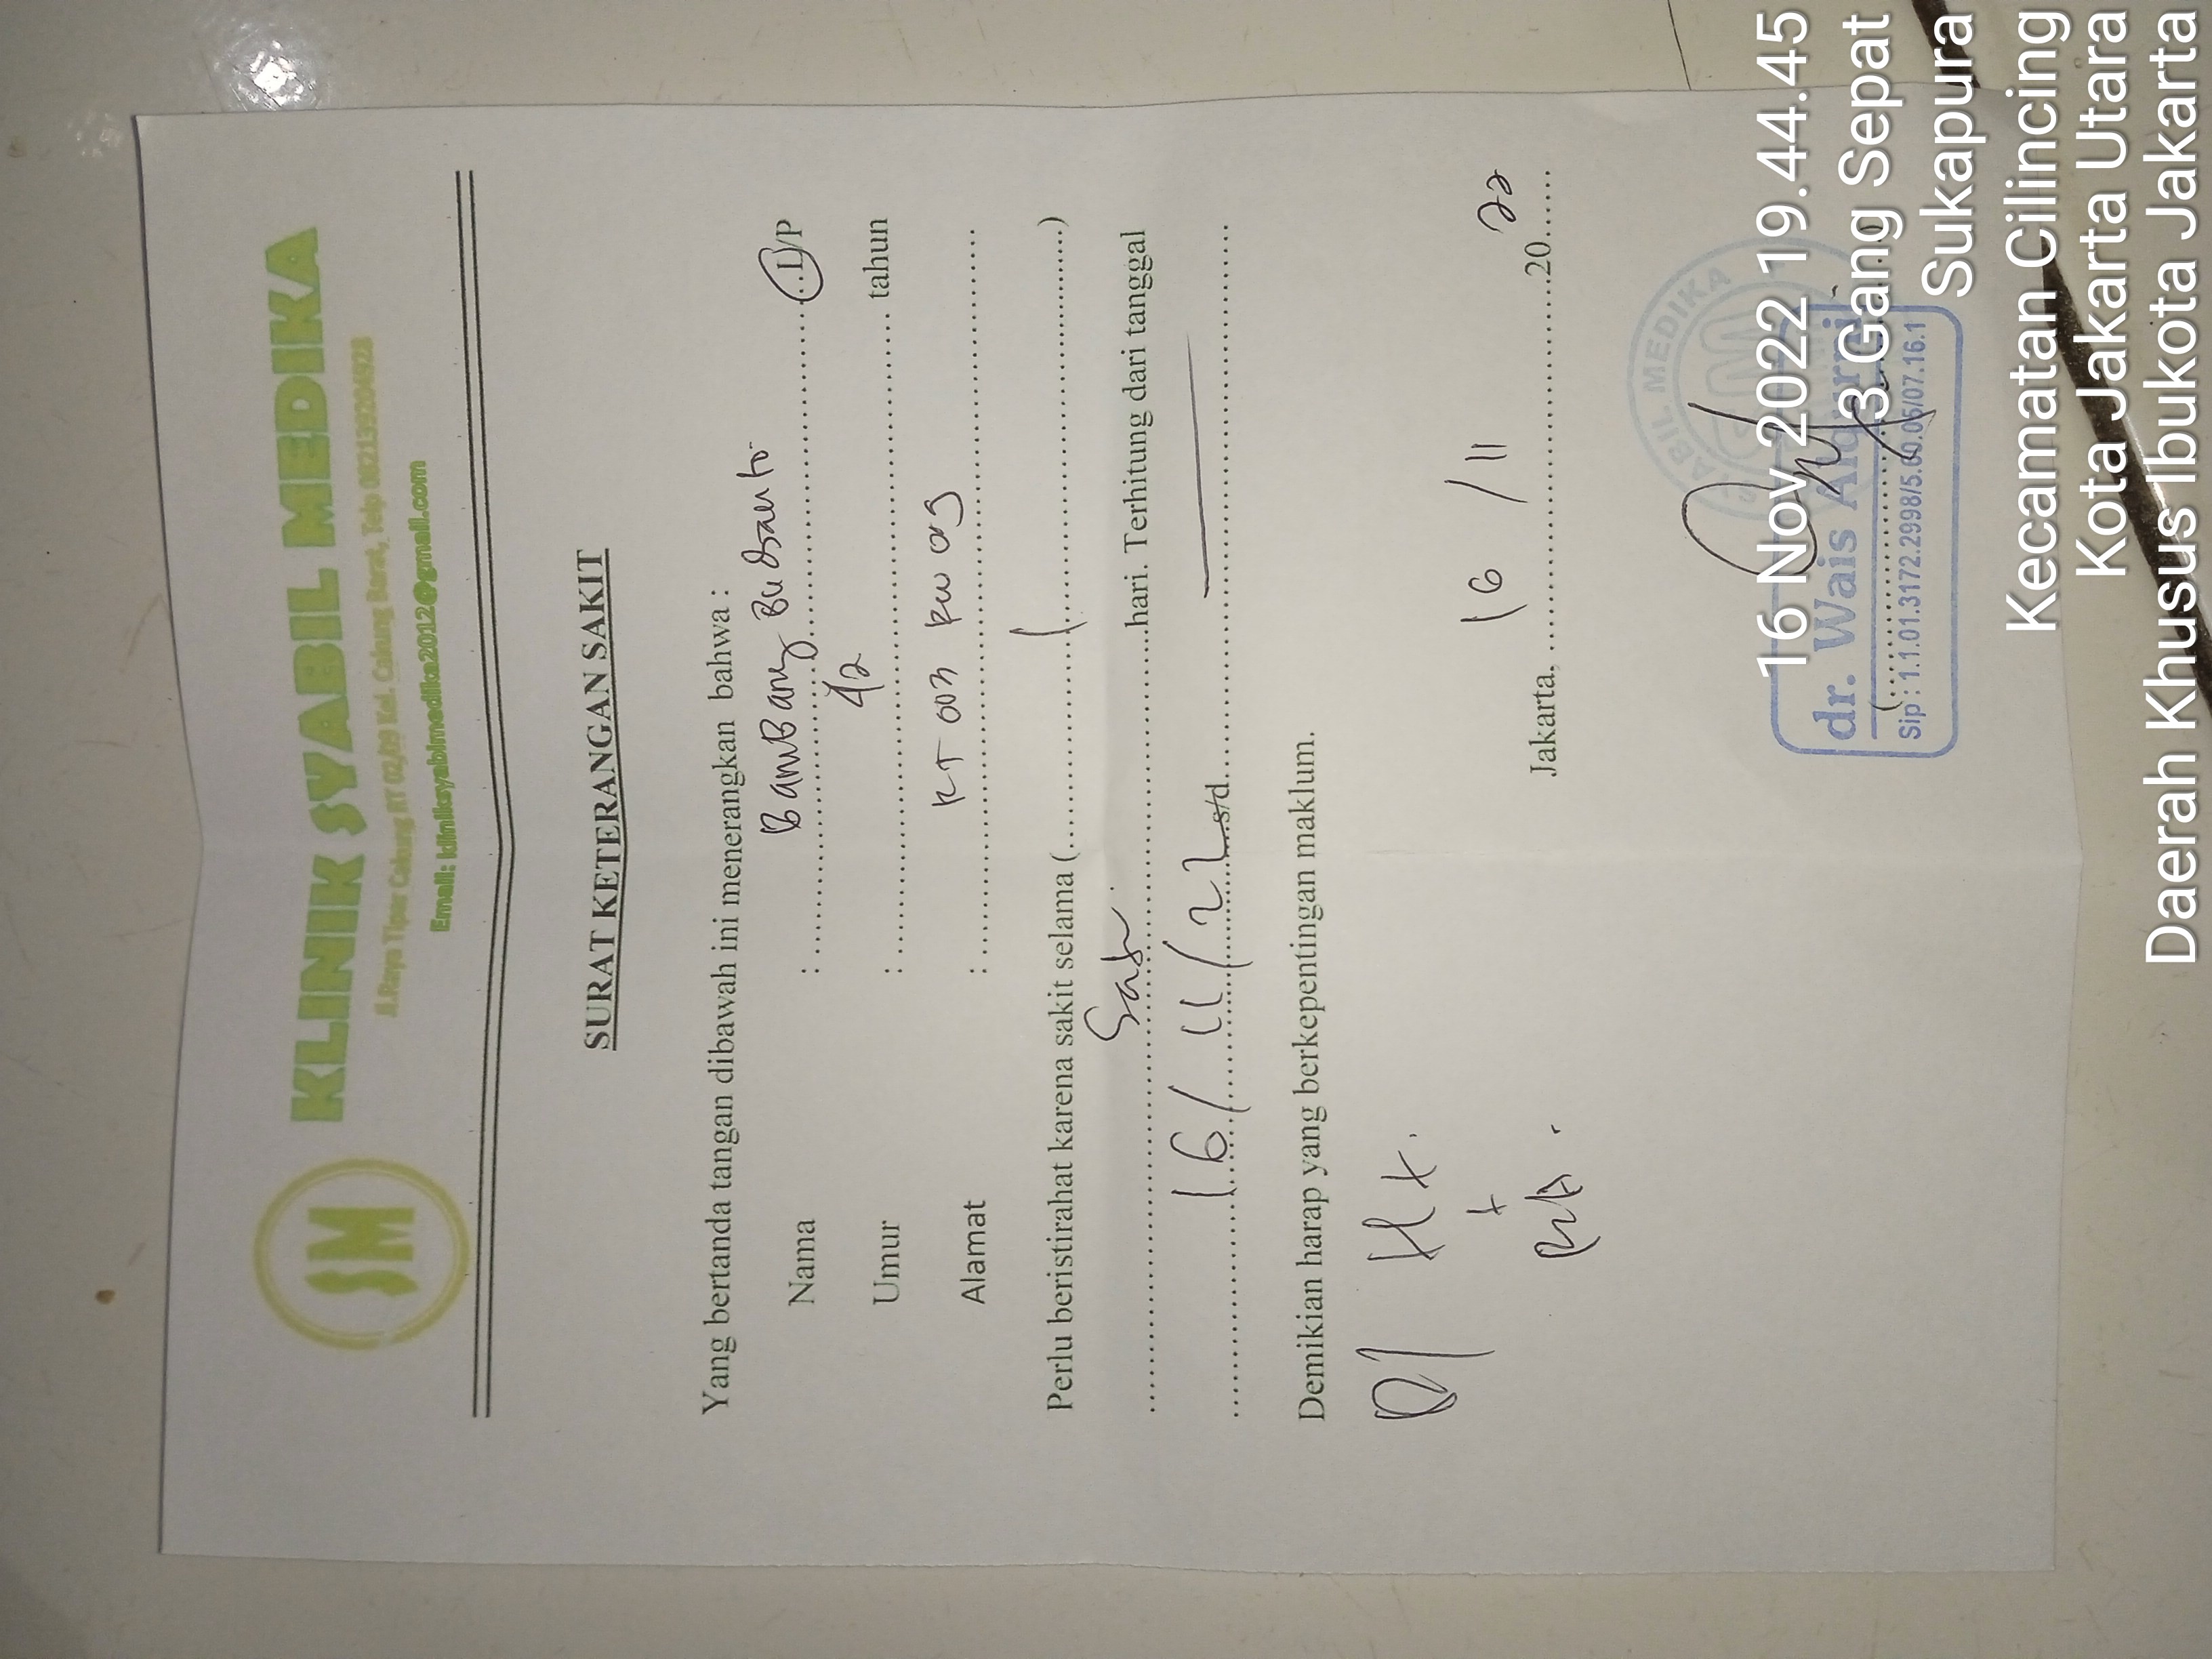 SM
KLINIK SYABIL MEDIKA
Jl.Raya Tipar Cakung RT 02/09 Kel. Cakung Barat, Telp 082139204928
Email: kliniksyabimedika2012@gmail.com
SURAT KETERANGAN SAKIT
Yang bertanda tangan dibawah ini menerangkan bahwa :
Nama : BamBang Budianto L/P
Umur : 42 tahun
Alamat : RT 003 RW 09
Perlu beristirahat karena sakit selama (........1........)
Satu hari. Terhitung dari tanggal
16/11/22 s/d
Demikian harap yang berkepentingan maklum.
D/ Ht.
+
Jakarta, 16/11 2022
SYABIL MEDIKA
SM
dr. Wais Alqurni
Sip : 1.1.01.3172.2998/5.60.05/07.16.1
16 Nov 2022 19.44.45
3 Gang Sepat
Sukapura
Kecamatan Cilincing
Kota Jakarta Utara
Daerah Khusus Ibukota Jakarta